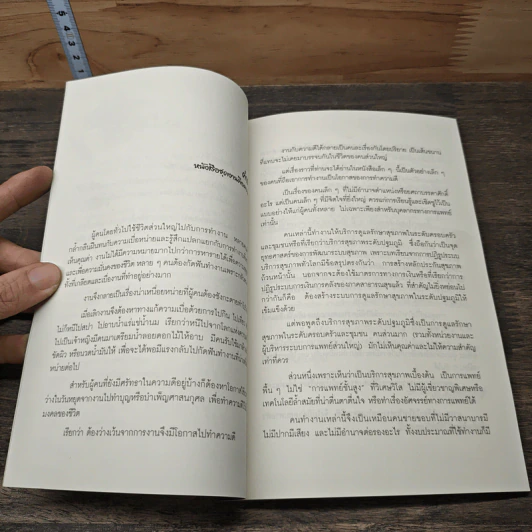 หนังสือชุดงานกับ
ผู้คนโดยทั่วไปใช้ชีวิตส่วนใหญ่ไปกับการทำงาน
กล้ำกลืนฝืนทนกับความเบื่อหน่ายและรู้สึกแปลกแยกกับการทำ
เห็นคุณค่า งานไม่ได้มีความหมายมากไปกว่าการหารายได้
และเพื่อความมั่นคงของชีวิต หลาย ๆ คนต้องกัดฟันทำงาน
ทั้งที่เกลียดและเบื่องานที่ทำอยู่อย่างมาก
งานจึงกลายเป็นเรื่องน่าเหนื่อยหน่ายที่ผู้คนต้อง
เมื่อเลิกงานจึงต้องหาทางแก้ความเบื่อด้วยการไปกิน
ไปกีฬาปีสปา ไปอาบน้ำแร่แช่น้ำนม เรียกว่าหนีไปจากโลก
ไปเป็นเจ้าหญิงมีคนมาเตรียมน้ำลอยดอกไม้ไว้อาบ
ขัดผิว หรือนวดน้ำมันให้ เพื่อจะได้พอมีแรงกลับไปกัดฟันทำงาน
หน่ายต่อไป
สำหรับผู้คนที่ยังมีศรัทธาในความดีอยู่บ้างก็ต้องหาโอกาส
ว่างในวันหยุดจากงานไปทำบุญหรือบำเพ็ญศาสนกุศล เพื่อทำความดี
มงคลของชีวิต
เรียกว่า ต้องว่างเว้นจากการงานจึงมีโอกาสไปทำความดี
งานกับความดีได้กลายเป็นคนละเรื่องกันโดยปริยาย เป็นเส้นขนาน
ที่แทบจะไม่เคยมาบรรจบกันในชีวิตของคนส่วนใหญ่
แต่เรื่องราวที่ท่านจะได้อ่านในหนังสือเล็ก ๆ นี้เป็นตัวอย่างเล็ก ๆ
ของคนที่ถือเอาการทำงานเป็นโอกาสของการทำความดี
เป็นเรื่องของคนเล็ก ๆ ที่ไม่มีอำนาจตำแหน่งหรือยศถาบรรดาศักดิ์
อะไร แต่เป็นคนเล็ก ๆ ที่มีจิตใจที่ยิ่งใหญ่ ควรแก่การเรียนรู้และเชิดชูไว้เป็น
แบบอย่างให้แก่ผู้คนทั้งหลาย ไม่เฉพาะเพียงสำหรับบุคลากรทางการแพทย์
เท่านั้น
คนเหล่านี้ทำงานให้บริการดูแลรักษาสุขภาพในระดับครอบครัว
และชุมชนหรือที่เรียกว่าบริการสุขภาพระดับปฐมภูมิ ซึ่งถือกันว่าเป็นจุด
ยุทธศาสตร์ของการพัฒนาระบบสุขภาพ เพราะบทเรียนจากการปฏิรูประบบ
บริการสุขภาพทั่วโลกมีข้อสรุปตรงกันว่า การสร้างหลักประกันสุขภาพ
ถ้วนหน้านั้น นอกจากจะต้องใช้มาตรการทางการเงินหรือที่เรียกว่าการ
ปฏิรูประบบการเงินการคลังของภาคสาธารณสุขแล้ว ที่สำคัญไม่ยิ่งหย่อนไป
กว่ากันก็คือ ต้องสร้างระบบการดูแลรักษาสุขภาพในระดับปฐมภูมิให้
เข้มแข็งด้วย
แต่พอพูดถึงบริการสุขภาพระดับปฐมภูมิซึ่งก็คือการดูแลรักษา
สุขภาพในระดับครอบครัวและชุมชน คนส่วนมาก (รวมทั้งหน่วยงานและ
ผู้บริหารระบบการแพทย์ส่วนใหญ่) มักไม่เห็นคุณค่าและไม่ให้ความสำคัญ
เท่าที่ควร
ส่วนหนึ่งเพราะเห็นว่าบริการสุขภาพเบื้องต้น เป็นการแพทย์
พื้น ๆ ไม่ใช่ "การแพทย์ขั้นสูง" ที่วิเศษวิโส ไม่มีผู้เชี่ยวชาญพิเศษหรือ
เทคโนโลยีล้ำสมัยที่น่าตื่นตาตื่นใจ หรือทำเรื่องอัศจรรย์ทางการแพทย์ได้
คนทำงานเหล่านี้จึงเป็นเหมือนคนชายขอบที่ไม่มีวาสนาบารมี
ไม่มีปากมีเสียง และไม่มีอำนาจต่อรองอะไร ทั้งงบประมาณที่ใช้ทำงานก็มี